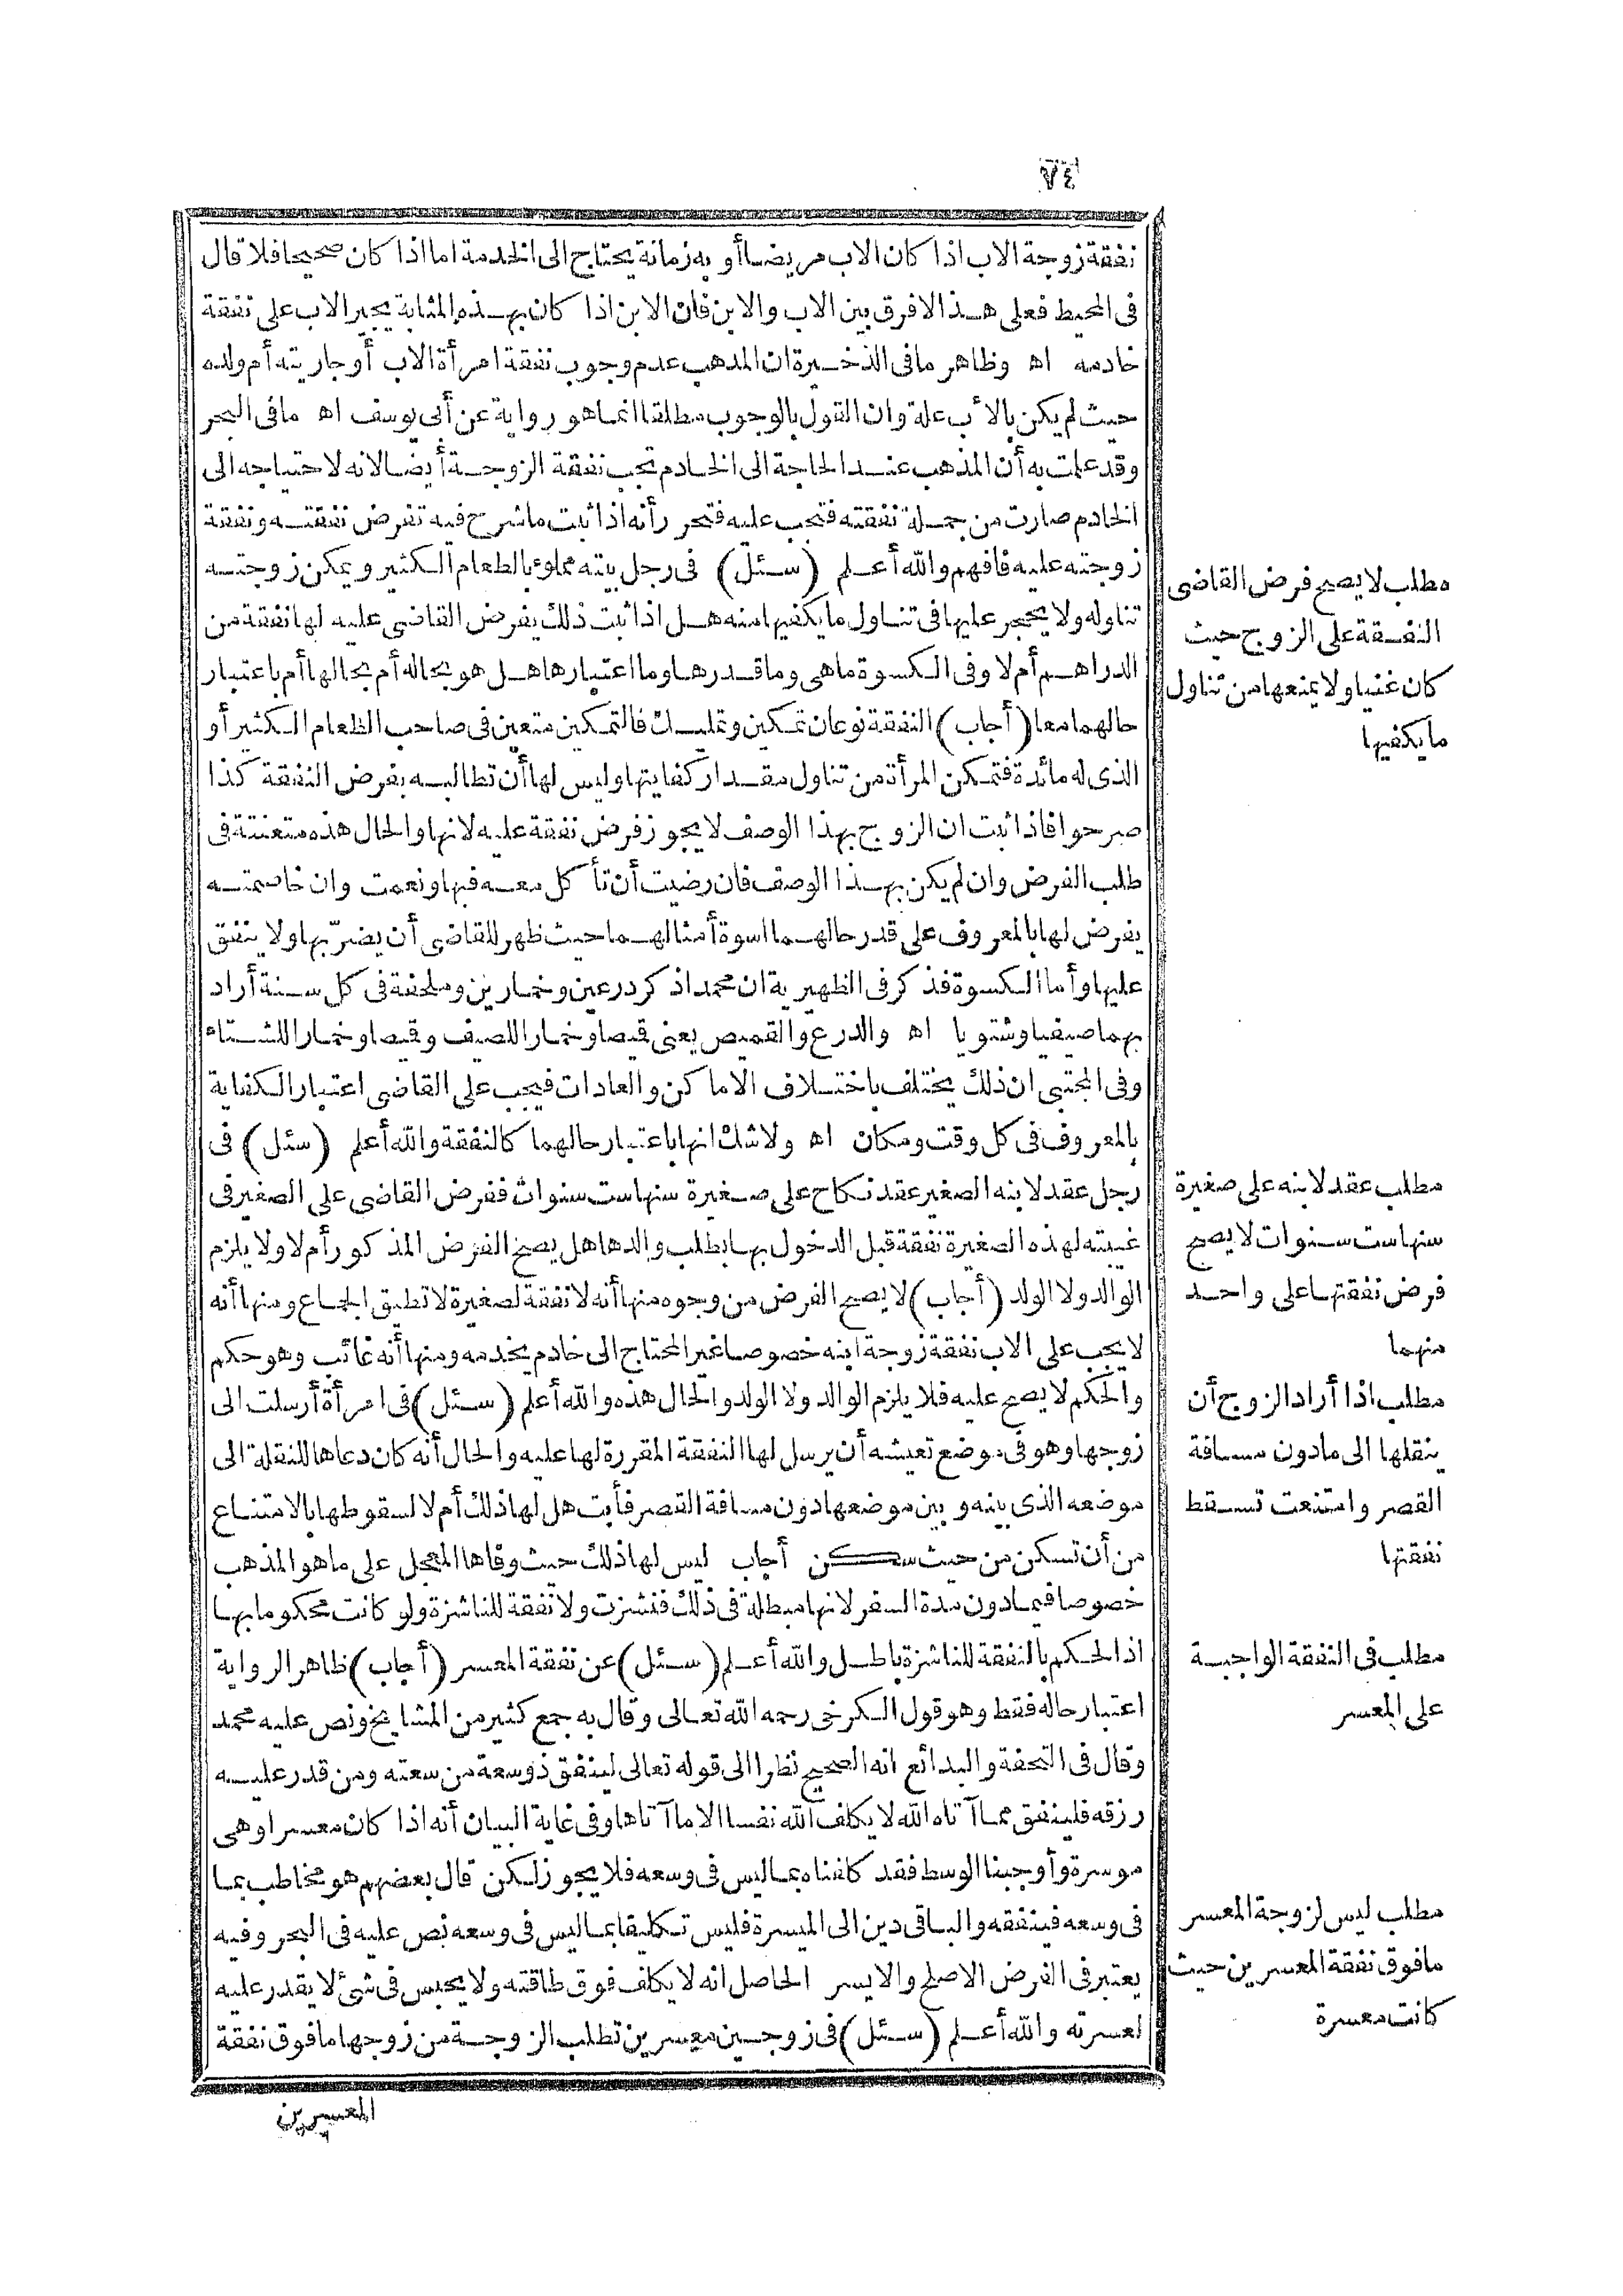 ٧٤
نفقة زوجة الاب اذا كان الاب مريضا أو به زمانة يحتاج الى الخدمة اما اذا كان صحيحا فلا قال
فى المحيط فعلى هذا لا فرق بين الاب والابن فان الابن اذا كان بهذه المثابة يجبر الاب على نفقة
خادمه اه وظاهر ما فى الذخيرة ان المذهب عدم وجوب نفقة امرأة الاب أو جاريته أم ولده
حيث لم يكن بالأب علة وان القول بالوجوب مطلقا انما هو رواية عن أبى يوسف اه ما فى البحر
وقد علمت به أن المذهب عند الحاجة الى الخادم تجب نفقة الزوجة أيضا لانه لاحتياجه الى
الخادم صارت من جملة نفقته فتجب عليه فتحرر أنه اذا ثبت ما شرح فيه تفرض نفقته ونفقة
زوجته عليه فافهم والله أعلم (سئل) فى رجل بيته مملوء بالطعام الكثير ويمكن زوجته
تناوله ولا يحجر عليها فى تناول ما يكفيها منه هل اذا ثبت ذلك يفرض القاضى عليه لها نفقة من
الدراهم أم لا وفى الكسوة ما هى وما قدرها وما اعتبارها هل هو بحاله أم بحالها أم باعتبار
حالهما معا (أجاب) النفقة نوعان تمكين وتمليك فالتمكين متعين فى صاحب الطعام الكثير أو
الذى له مائدة فتمكن المرأة من تناول مقدار كفايتها وليس لها أن تطالبه بفرض النفقة كذا
صرحوا فاذا ثبت ان الزوج بهذا الوصف لا يجوز فرض نفقة عليه لانها والحال هذه متعنتة فى
طلب الفرض وان لم يكن بهذا الوصف فان رضيت أن تأكل معه فبها ونعمت وان خاصمته
يفرض لها بالمعروف على قدر حالهما اسوة أمثالهما حيث ظهر للقاضى أن يضرّ بها ولا ينفق
عليها وأما الكسوة فذكر فى الظهيرية ان محمدا ذكر درعين وخمارين وملحفة فى كل سنة أراد
بهما صيفيا وشتويا اه والدرع والقميص يعنى قميصا وخمارا للصيف وقميصا وخمارا للشتاء
وفى المجتبى ان ذلك يختلف باختلاف الاماكن والعادات فيجب على القاضى اعتبار الكفاية
بالمعروف فى كل وقت ومكان اه ولا شك انها باعتبار حالهما كالنفقة والله أعلم (سئل) فى
رجل عقد لابنه الصغير عقد نكاح على صغيرة سنها ست سنوات ففرض القاضى على الصغير فى
غيبته لهذه الصغيرة نفقة قبل الدخول بها بطلب والدها هل يصح الفرض المذكور أم لا ولا يلزم
الوالد ولا الولد (أجاب) لا يصح الفرض من وجوه منها أنه لا نفقة لصغيرة لا تطيق الجماع ومنها أنه
لا يجب على الاب نفقة زوجة ابنه خصوصا غير المحتاج الى خادم يخدمه ومنها أنه غائب وهو حكم
والحكم لا يصح عليه فلا يلزم الوالد ولا الولد والحال هذه والله أعلم (سئل) فى امرأة أرسلت الى
زوجها وهو فى موضع تعيشه أن يرسل لها النفقة المقررة لها عليه والحال أنه كان دعاها للنقلة الى
موضعه الذى بينه وبين موضعها دون مسافة القصر فأبت هل لها ذلك أم لا لسقوطها بالامتناع
من أن تسكن من حيث سكن أجاب ليس لها ذلك حيث وفاها المعجل على ما هو المذهب
خصوصا فيما دون مدة السفر لانها مبطلة فى ذلك فنشزت ولا نفقة للناشزة ولو كانت محكوما بها
اذ الحكم بالنفقة للناشزة باطل والله أعلم (سئل) عن نفقة المعسر (أجاب) ظاهر الرواية
اعتبار حاله فقط وهو قول الكرخى رحمه الله تعالى وقال به جمع كثير من المشايخ ونص عليه محمد
وقال فى التحفة والبدائع انه الصحيح نظرا الى قوله تعالى لينفق ذو سعة من سعته ومن قدر عليه
رزقه فلينفق مما آتاه الله لا يكلف الله نفسا الا ما آتاها وفى غاية البيان أنه اذا كان معسرا وهى
موسرة وأوجبنا الوسط فقد كلفناه بما ليس فى وسعه فلا يجوز لكن قال بعضهم هو مخاطب بما
فى وسعه فينفقه والباقى دين الى الميسرة فليس تكليفا بما ليس فى وسعه نص عليه فى البحر وفيه
يعتبر فى الفرض الاصلح والايسر الحاصل انه لا يكلف فوق طاقته ولا يحبس فى شئ لا يقدر عليه
لعسرته والله أعلم (سئل) فى زوجين معسرين تطلب الزوجة من زوجها ما فوق نفقة
المعسرين
مطلب لا يصح فرض القاضى
النفقة على الزوج حيث
كان غنيا ولا يمنعها من تناول
ما يكفيها
مطلب عقد لابنه على صغيرة
سنها ست سنوات لا يصح
فرض نفقتها على واحد
منهما
مطلب اذا أراد الزوج أن
ينقلها الى ما دون مسافة
القصر وامتنعت تسقط
نفقتها
مطلب فى النفقة الواجبة
على المعسر
مطلب ليس لزوجة المعسر
ما فوق نفقة المعسرين حيث
كانت معسرة